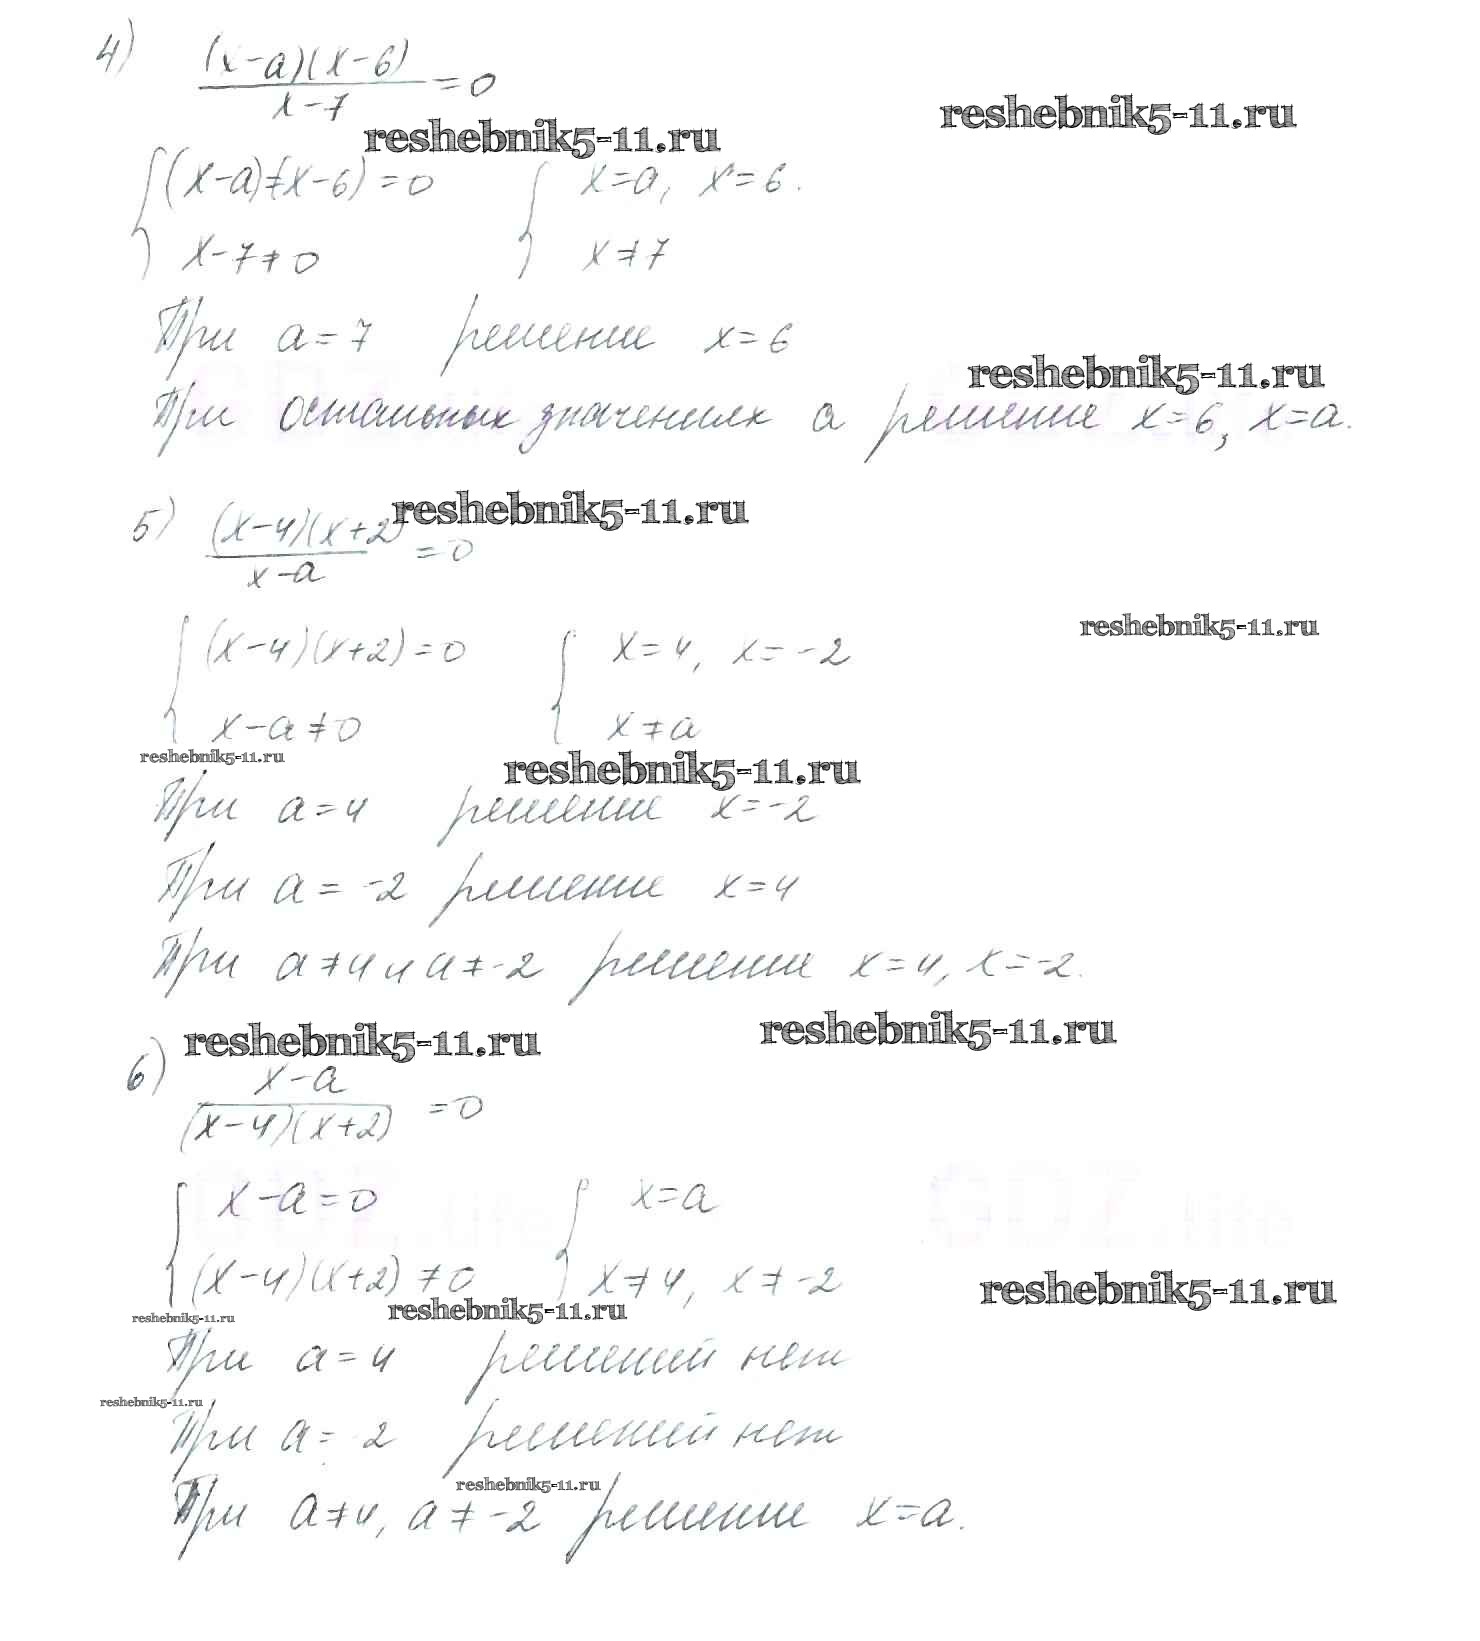 4) (x-a)(x-6)
x-7 =0
reshebnik5-11.ru
reshebnik5-11.ru
(x-a)=(x-6)=0 x=a, x=6.
x-7≠0 x≠7
При a=7 решение x=6
reshebnik5-11.ru
При остальных значениях a решение x=6, x=a.
5) (x-4)(x+2)
x-a =0
reshebnik5-11.ru
reshebnik5-11.ru
(x-4)(x+2)=0 x=4, x=-2
x-a≠0 x≠a
reshebnik5-11.ru
reshebnik5-11.ru
При a=4 решение x=-2
При a=-2 решение x=4
При a≠4 и a≠-2 решение x=4, x=-2.
reshebnik5-11.ru
reshebnik5-11.ru
6) x-a
(x-4)(x+2) =0
GDZ.life
GDZ.life
x-a=0 x=a
(x-4)(x+2)≠0 x≠4, x≠-2
reshebnik5-11.ru
reshebnik5-11.ru
reshebnik5-11.ru
При a=4 решений нет
reshebnik5-11.ru
При a=-2 решений нет
reshebnik5-11.ru
При a≠4, a≠-2 решение x=a.